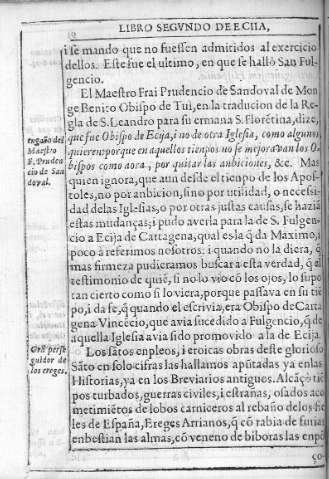 LIBRO SEGVNDO DE ECIIA,
i se mando que no fuessen admitidos al exercicio
dellos. Este fue el ultimo, en que se hallò San Ful-
gencio.
El Maestro Frai Prudencio de Sandoval de Mon
ge Benito Obispo de Tui, en la traducion de la Re
gla de S. Leandro para su ermana S. Florētina, dize,
que fue Obispo de Ecija, i no de otra Iglesia, como algunos
quieren porque en aquellos tienpos no se mejoravan los O-
bispos como aora, por quitar las anbiciones, &c. Mas
quien ignora, que aun desde el tienpo de los Apos-
toles, no por anbicion, sino por utilidad, o necessi-
dad delas Iglesias, o por otras justas causas, se haziā
estas mudanças; i pudo averla para la de S. Fulgen-
cio a Ecija de Cartagena, qual es la q̄ da Maximo, i
poco à referimos nosotros: i quando no la diera, q̄
mas firmeza pudieramos buscar a esta verdad, q̄ el
testimonio de quiē, si no lo vio cō los ojos, lo supo
tan cierto como si lo viera, porque passava en su tiē
po, i da fe, q̄ quando el escrivia, era Obispo de Cart
gena Vincēcio, que avia sucedido a Fulgencio, q̄ de
aquella Iglesia avia sido promovido a la de Ecija.
Los sātos enpleos, i eroicas obras deste glorioso
Sāto en solo cifras las hallamos apūtadas ya en las
Historias, ya en los Breviarios antiguos. Alcāçò tiē
pos turbados, guerras civiles, i estrañas, osados aco
metimiētos de lobos carniceros al rebaño de los fie
les de España, Ereges Arrianos, q̄ cō rabia de furias
enbestian las almas, cō veneno de biboras las enpō
ço
engaño del
Maestro
F. Pruden
cio de San
doval.
Grā perse
guidor de
los ereges.